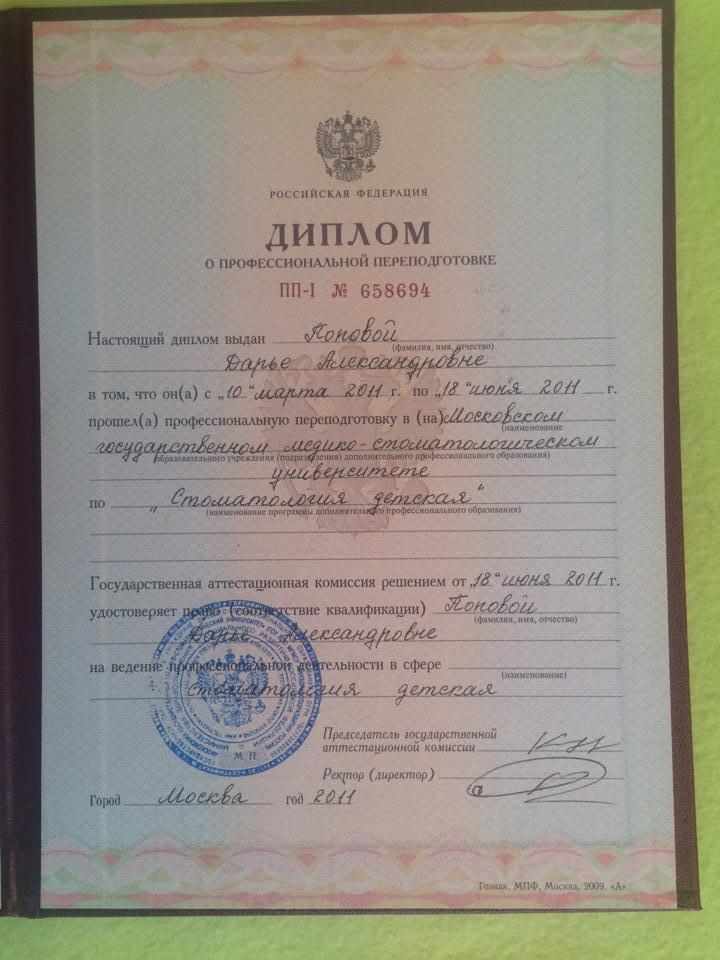 РОССИЙСКАЯ ФЕДЕРАЦИЯ
ДИПЛОМ
О ПРОФЕССИОНАЛЬНОЙ ПЕРЕПОДГОТОВКЕ
ПП-I № 658694
Настоящий диплом выдан Поповой
(фамилия, имя, отчество)
Дарье Александровне
в том, что он(а) с „10“ марта 2011 г. по „18“ июня 2011 г.
прошел(а) профессиональную переподготовку в (на) Московском
(наименование
государственном медико-стоматологическом
образовательного учреждения (подразделения) дополнительного профессионального образования)
университете
по „Стоматология детская“
(наименование программы дополнительного профессионального образования)
Государственная аттестационная комиссия решением от „18“ июня 2011 г.
удостоверяет право (соответствие квалификации) Поповой
(фамилия, имя, отчество)
Дарье Александровне
на ведение профессиональной деятельности в сфере
(наименование)
стоматология детская
Председатель государственной
аттестационной комиссии
М. П.
Ректор (директор)
Город Москва год 2011
Гознак, МПФ, Москва, 2009, «А».